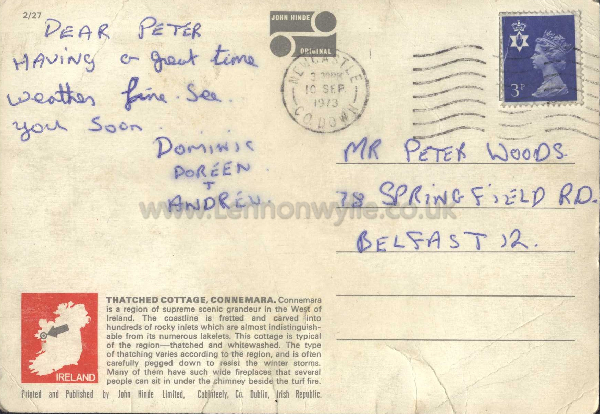 2/27
DEAR PETER
HAVING a great time
weather fine. See
you soon
DOMINIC
DOREEN
+
ANDREW.
JOHN HINDE
ORIGINAL
NEWCASTLE
10 SEP
1973
CO. DOWN
3P
MR PETER WOODS
78 SPRINGFIELD RD.
BELFAST 12.
www.Lennonwylie.co.uk
THATCHED COTTAGE, CONNEMARA. Connemara
is a region of supreme scenic grandeur in the West of
Ireland. The coastline is fretted and carved into
hundreds of rocky inlets which are almost indistinguish-
able from its numerous lakelets. This cottage is typical
of the region—thatched and whitewashed. The type
of thatching varies according to the region, and is often
carefully pegged down to resist the winter storms.
Many of them have such wide fireplaces that several
people can sit in under the chimney beside the turf fire.
IRELAND
Printed and Published by John Hinde Limited, Cabinteely, Co. Dublin, Irish Republic.